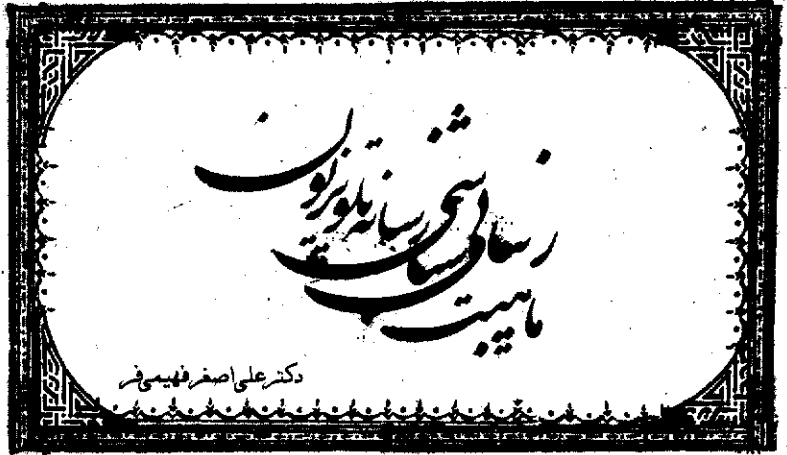 ماهیت زیبائی شناختی رسانه تلویزیون
دکتر علی اصغر فهیمی فر